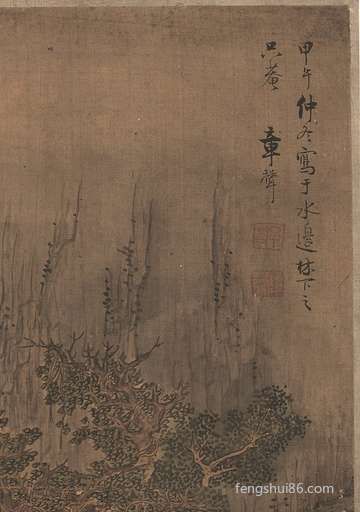 甲午仲冬寫于水邊林下之
只菴 章聲
fengshui86.com